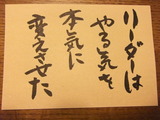 リーダーは
やる気を
本気に
変えさせた